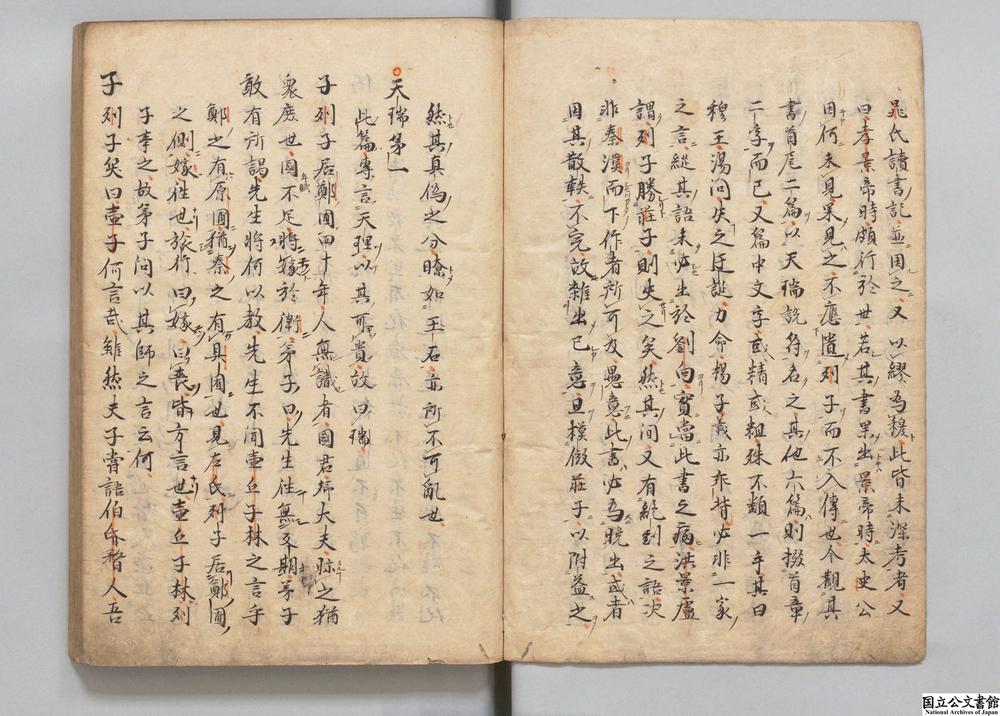 晁氏讀書記並因之又以繆為穆此皆未深考者又
曰孝景帝時頗行於世若其書果出景帝時太史公
因何未見果見之不應遺列子而不入傳也今觀其
書首尾二篇以天瑞說符名之其他六篇則掇首章
二字而已又篇中文字或精或粗殊不類一手其曰
穆王湯問失之迂誕力命楊子義亦乖背必非一家
之言縱其語未必出於劉向實當此書之病洪景盧
謂列子勝莊子則失之矣然其間又有絕到之語決
非秦漢而下作者所可及愚意此書必為晚出或者
因其散軼不完故雜出己意且模倣莊子以附益之
然其真偽之分瞭如玉石亦所不可亂也
天瑞第一
此篇專言天理以其可貴故曰瑞
子列子居鄭圃四十年人無識者國君卿大夫眎之猶
衆庶也國不足將嫁於衛弟子曰先生往無反期弟子
年飢
敢有所謁先生將何以教先生不聞壺丘子林之言乎
鄭之有原圃猶秦之有具圃也見左氏列子居鄭圃
之側嫁往也旅行曰嫁曰喪皆方言也壺丘子林列
子事之故弟子問以其師之言云何
子列子笑曰壺子何言哉雖然夫子嘗語伯昏瞀人吾
国立公文書館
National Archives of Japan